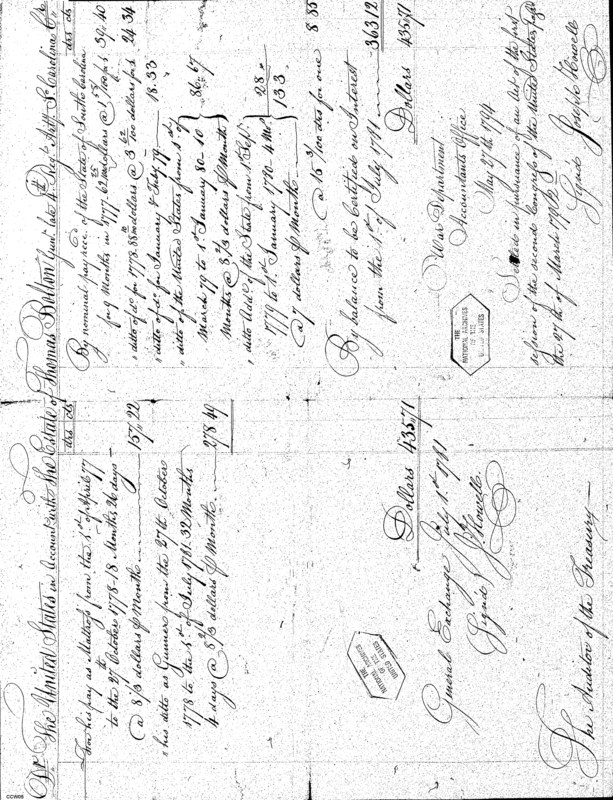 Dr. The United States in Account with The Estate of Thomas Bolton Gunr. late 4. Regt. Arty. So. Carolina Cr.
drs cts
For his pay as Matross from the 1st of April 77
to the 27th October 1778-18 Months 26 days
@ 8 1/3 dollars P Month 157,,22
,, his ditto as Gunner from the 27th October
1778 to the 1st of July 1781. 32 Months
4 days @ 8 2/3 dollars P Month 278 49
Dollars 435,,71
General Exchange July 1st 1781
Liquid J Howell
The Auditor of the Treasury
drs cts
By nominal pay recd. of the State of South Carolina
for 9 Months in 1777 dollars @ 39.40
,, ditto of do. for 1778. dollars @ 3 62/100 dollars for 1. 24 34
,, ditto of do. for January & Feby. 79 18.33
,, ditto of the United States from 1st
March 79 to 1st January 80-10
Months @ 8 2/3 dollars P Month 86.67
,, ditto Addl. of the State from 1st Sepr.
1779 to 1st January 1780-4 Mo.
@ 7 dollars P Month 28
133
@ 15 drs for one 8 85
By balance to be Certified on Interest
from the 1st of July 1781 363 12
Dollars 435,,71
War Department
Accountants Office
May 27th 1794
Settled in pursuance of an Act of the first
session of the second Congress of the United States, passed
the 27th of March 1792
Liquid Joseph Howell
THE
NATIONAL ARCHIVES
OF THE
UNITED STATES
THE
NATIONAL ARCHIVES
OF THE
UNITED STATES
CCW08